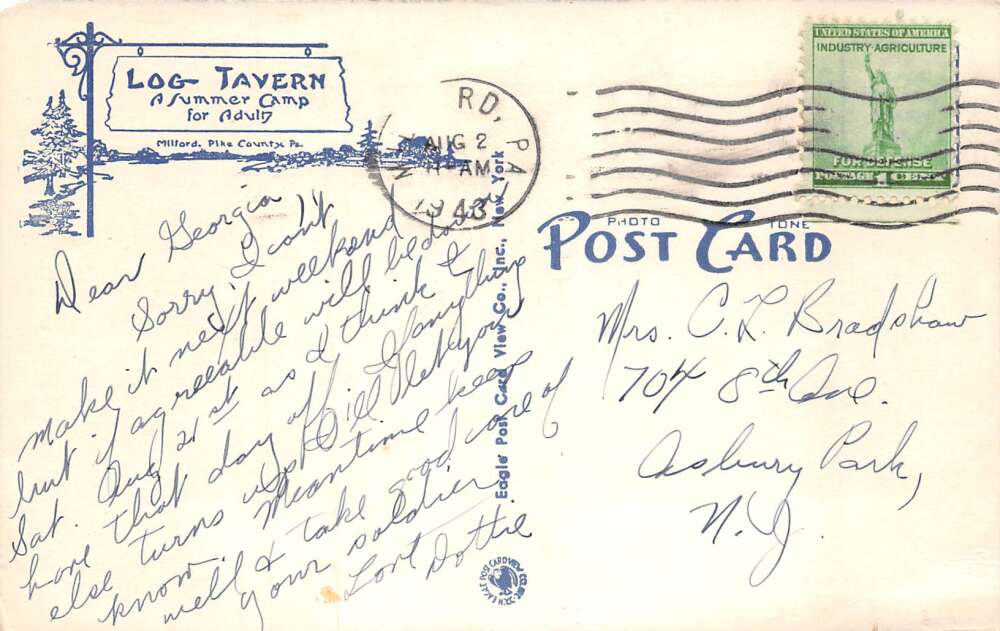 LOG TAVERN
A Summer Camp
for Adults
Milford, Pike County, Pa.
RD, PA
AUG 2
11 AM
1943
UNITED STATES OF AMERICA
INDUSTRY AGRICULTURE
FOR DEFENSE
POSTAGE 1 CENT
PHOTO TONE
POST CARD
Dear Georgia
Sorry, I can't
make it next weekend
but if agreeable will be down
Sat. Aug 21st as I think I
have that day off. If anything
else turns up I'll let you
know. Meantime keep
well & take good care of
your soldier.
Dottie
Mrs. C. L. Bradshaw
704 8th Ave.
Asbury Park,
N.J.
Eagle Post Card View Co., Inc., New York
EAGLE POST CARD VIEW CO.